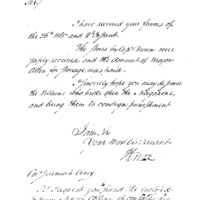 Sir,
I have received your favors of
the 26th Ulto and 8th Instant.
The Stores by Capt Drum were
safely received and the Account of Major
Allen for forage, was paid.
I sincerely hope you may discover
the Villains who broke open the Magazine,
and bring them to condign punishment
I am, Sir
Your most Obt Servant
H Knox
Capt Jeremiah Olney.
I request you